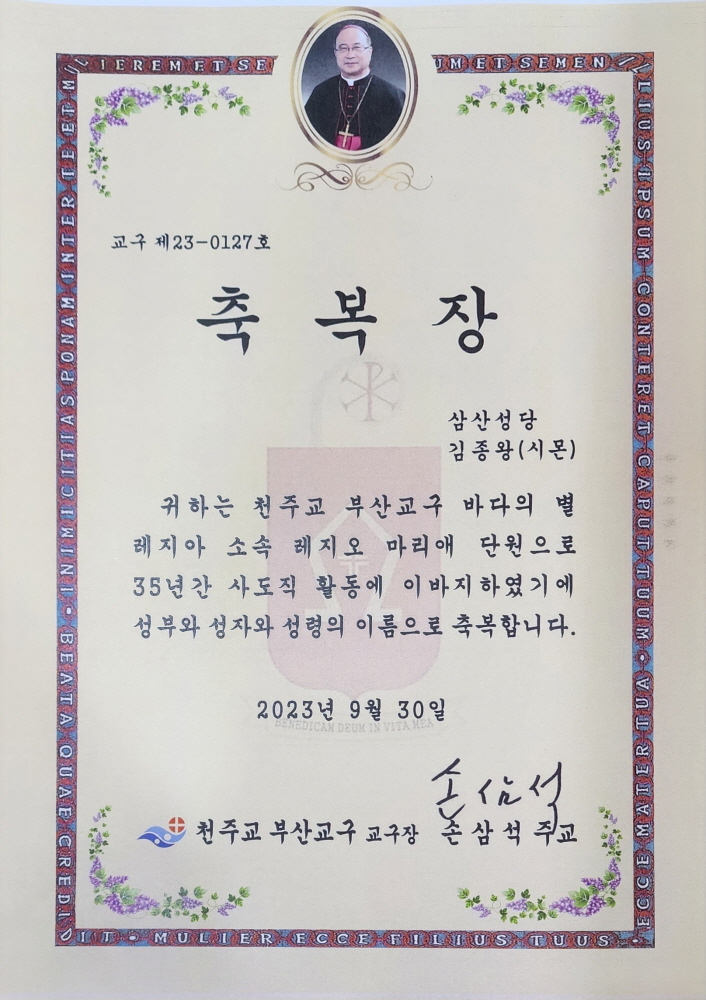 INIMICITIAS PONAM INTER TE ET MULIEREM ET SE
UM ET SEMEN ILLIUS IPSUM CONTERET CAPUT TUUM • ECCE MATER TUA
교구 제23-0127호
축 복 장
삼산성당
김종왕(시몬)
귀하는 천주교 부산교구 바다의 별
레지아 소속 레지오 마리애 단원으로
35년간 사도직 활동에 이바지하였기에
성부와 성자와 성령의 이름으로 축복합니다.
2023년 9월 30일
BENEDICAM DEUM IN VITA MEA
손삼석
천주교 부산교구 교구장 손 삼 석 주교
BEATA QUAE CREDIDIT • MULIER ECCE FILIUS TUUS •